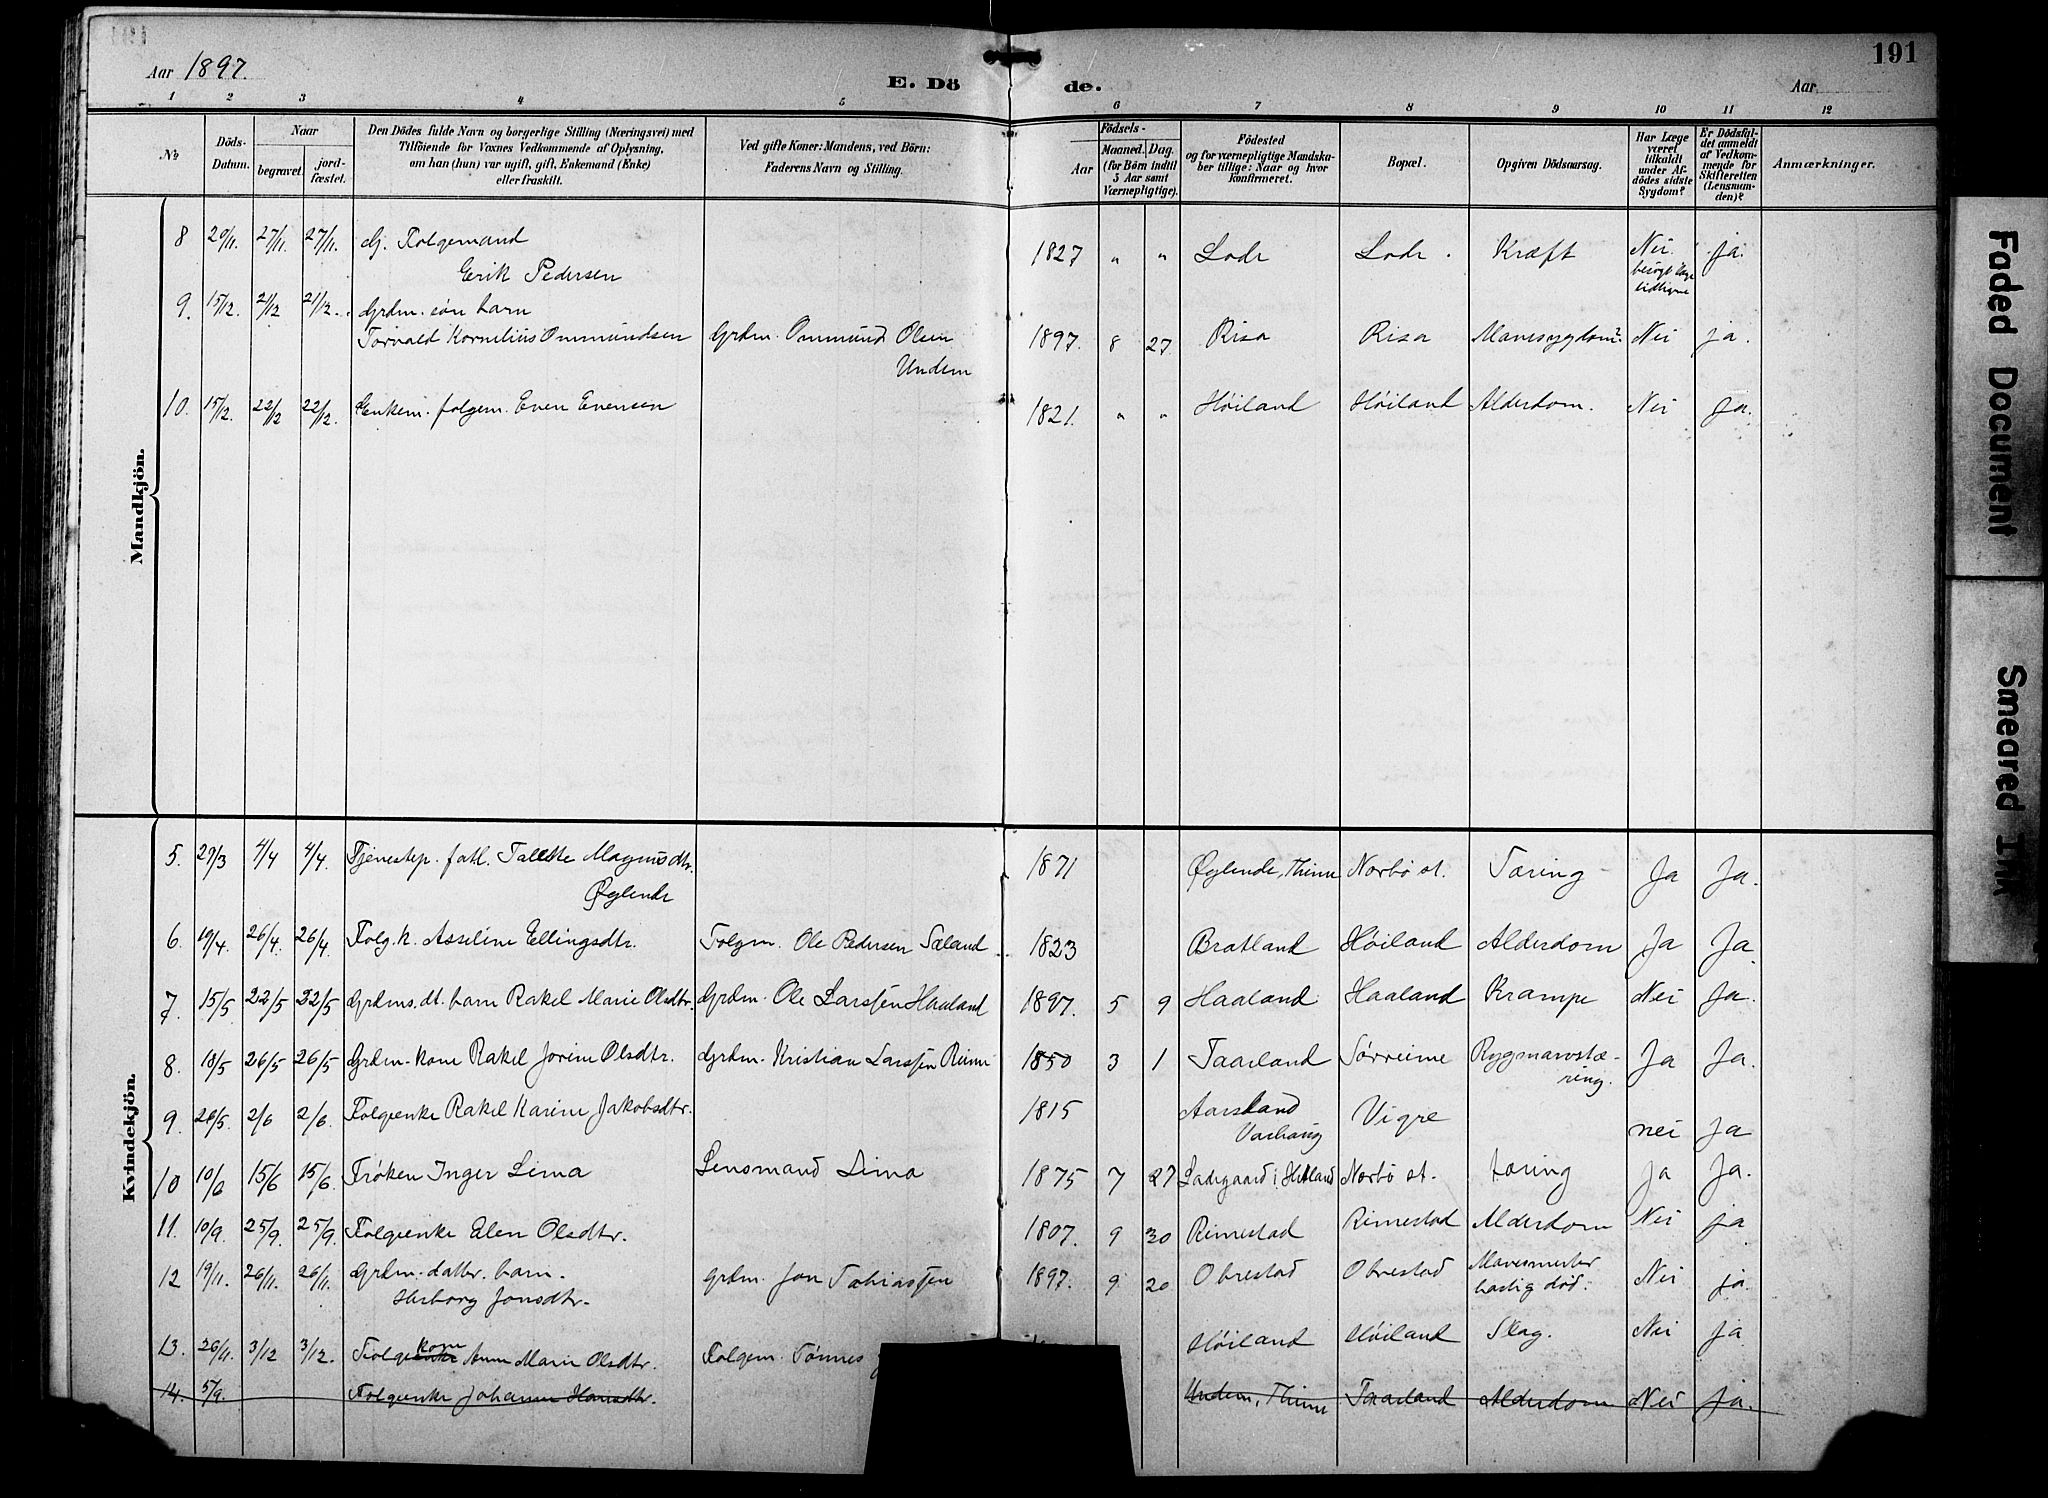 Aar 1897.
E. Dö de.
Aar
191
1 2 3 4 5 6 7 8 9 10 11 12
No
Döds-Datum.
Naar
begravet.
jord-fæstet.
Den Dödes fulde Navn og borgerlige Stilling (Næringsvei) med
Tilföiende for Voxnes Vedkommende af Oplysning,
om han (hun) var ugift, gift, Enkemand (Enke)
eller fraskilt.
Ved gifte Koner: Mandens, ved Börn:
Faderens Navn og Stilling.
Födsels-
Aar
Maaned. Dag.
(for Börn indtil
5 Aar samt
Værnepligtige).
Födested
og for værnepligtige Mandska-
ber tillige: Naar og hvor
konfirmeret.
Bopæl.
Opgiven Dödsaarsag.
Har Læge
været
tilkaldt
under Af-
dödes sidste
Sygdom?
Er Dödsfal-
det anmeldt
af Vedkom-
mende for
Skifteretten
(Lensman-
den)?
Anmærkninger.
Mandkjön.
8 20/11. 27/11. 27/11. Folgemand 1827 " " Lode Lode. Kræft Nei. ja.
Erik Pedersen
tidligere
9. 15/12. 21/12 21/12. Grdm. søn barn
Torvald Kornelius Ommundsen Grdm. Ommund Olsen 1897. 8 27 Risa Risa Mavesygdom? Nei ja.
Undem
10. 15/12. 22/12 22/12. Enkem. folgem. Even Evensen 1821. " " Høiland Høiland Alderdom. Nei Ja.
Kvindekjön.
5. 29/3 4/4 4/4. Tjenestep. fatl. Talette Magnusdtr. 1871 Øglende, Thime Nærbø st. Tæring Ja Ja.
Øglende
6. 19/4. 26/4. 26/4. Folg.k. Asseline Ellingsdtr. Folgm. Ole Pedersen Sæland 1823 Bratland Høiland Alderdom Ja Ja.
7. 15/5. 22/5 22/5 Grdms. dt. barn Rakel Marie Olsdtr. Grdm. Ole Larssen Haaland 1897. 5 9 Haaland Haaland Krampe Nei Ja.
8. 18/5 26/5 26/5 Grdm. kone Rakel Jorine Olsdtr. Grdm. Kristian Larssen Reime 1850 3 1 Taarland Sørreime Rygmarvstæ-
ring. Ja Ja.
9. 26/5. 2/6 2/6. Folgeenke Rakel Karine Jakobsdtr. 1815 Aarsland
Varhaug Vigre nei Ja
10 10/6 15/6 15/6. Frøken Inger Lima Lensmand Lima 1875 7 27 Ladegaard i Hetland Nærbø st. tæring Ja Ja.
11. 10/9. 25/9. 25/9. Folgeenke Elen Olsdtr. 1807. 9 30 Rimestad Rimestad Alderdom Nei ja
12 19/11. 26/11. 26/11. Grdm. datter. barn. Grdm. Jon Tobiassen 1897. 9 20 Obrestad Obrestad
hastig død. Nei ja.
Herborg Jonsdtr.
13. 26/11. 3/12 3/12. Folge kone enke Ane Marie Olsdtr. Folgem. Tønnes Høiland Høiland Slag. Nei ja
14. 5/9. Folgeenke Johanne Hansdtr. Undem, Thime Taarland Alderdom Nei ja.
Faded Document
Smeared Ink